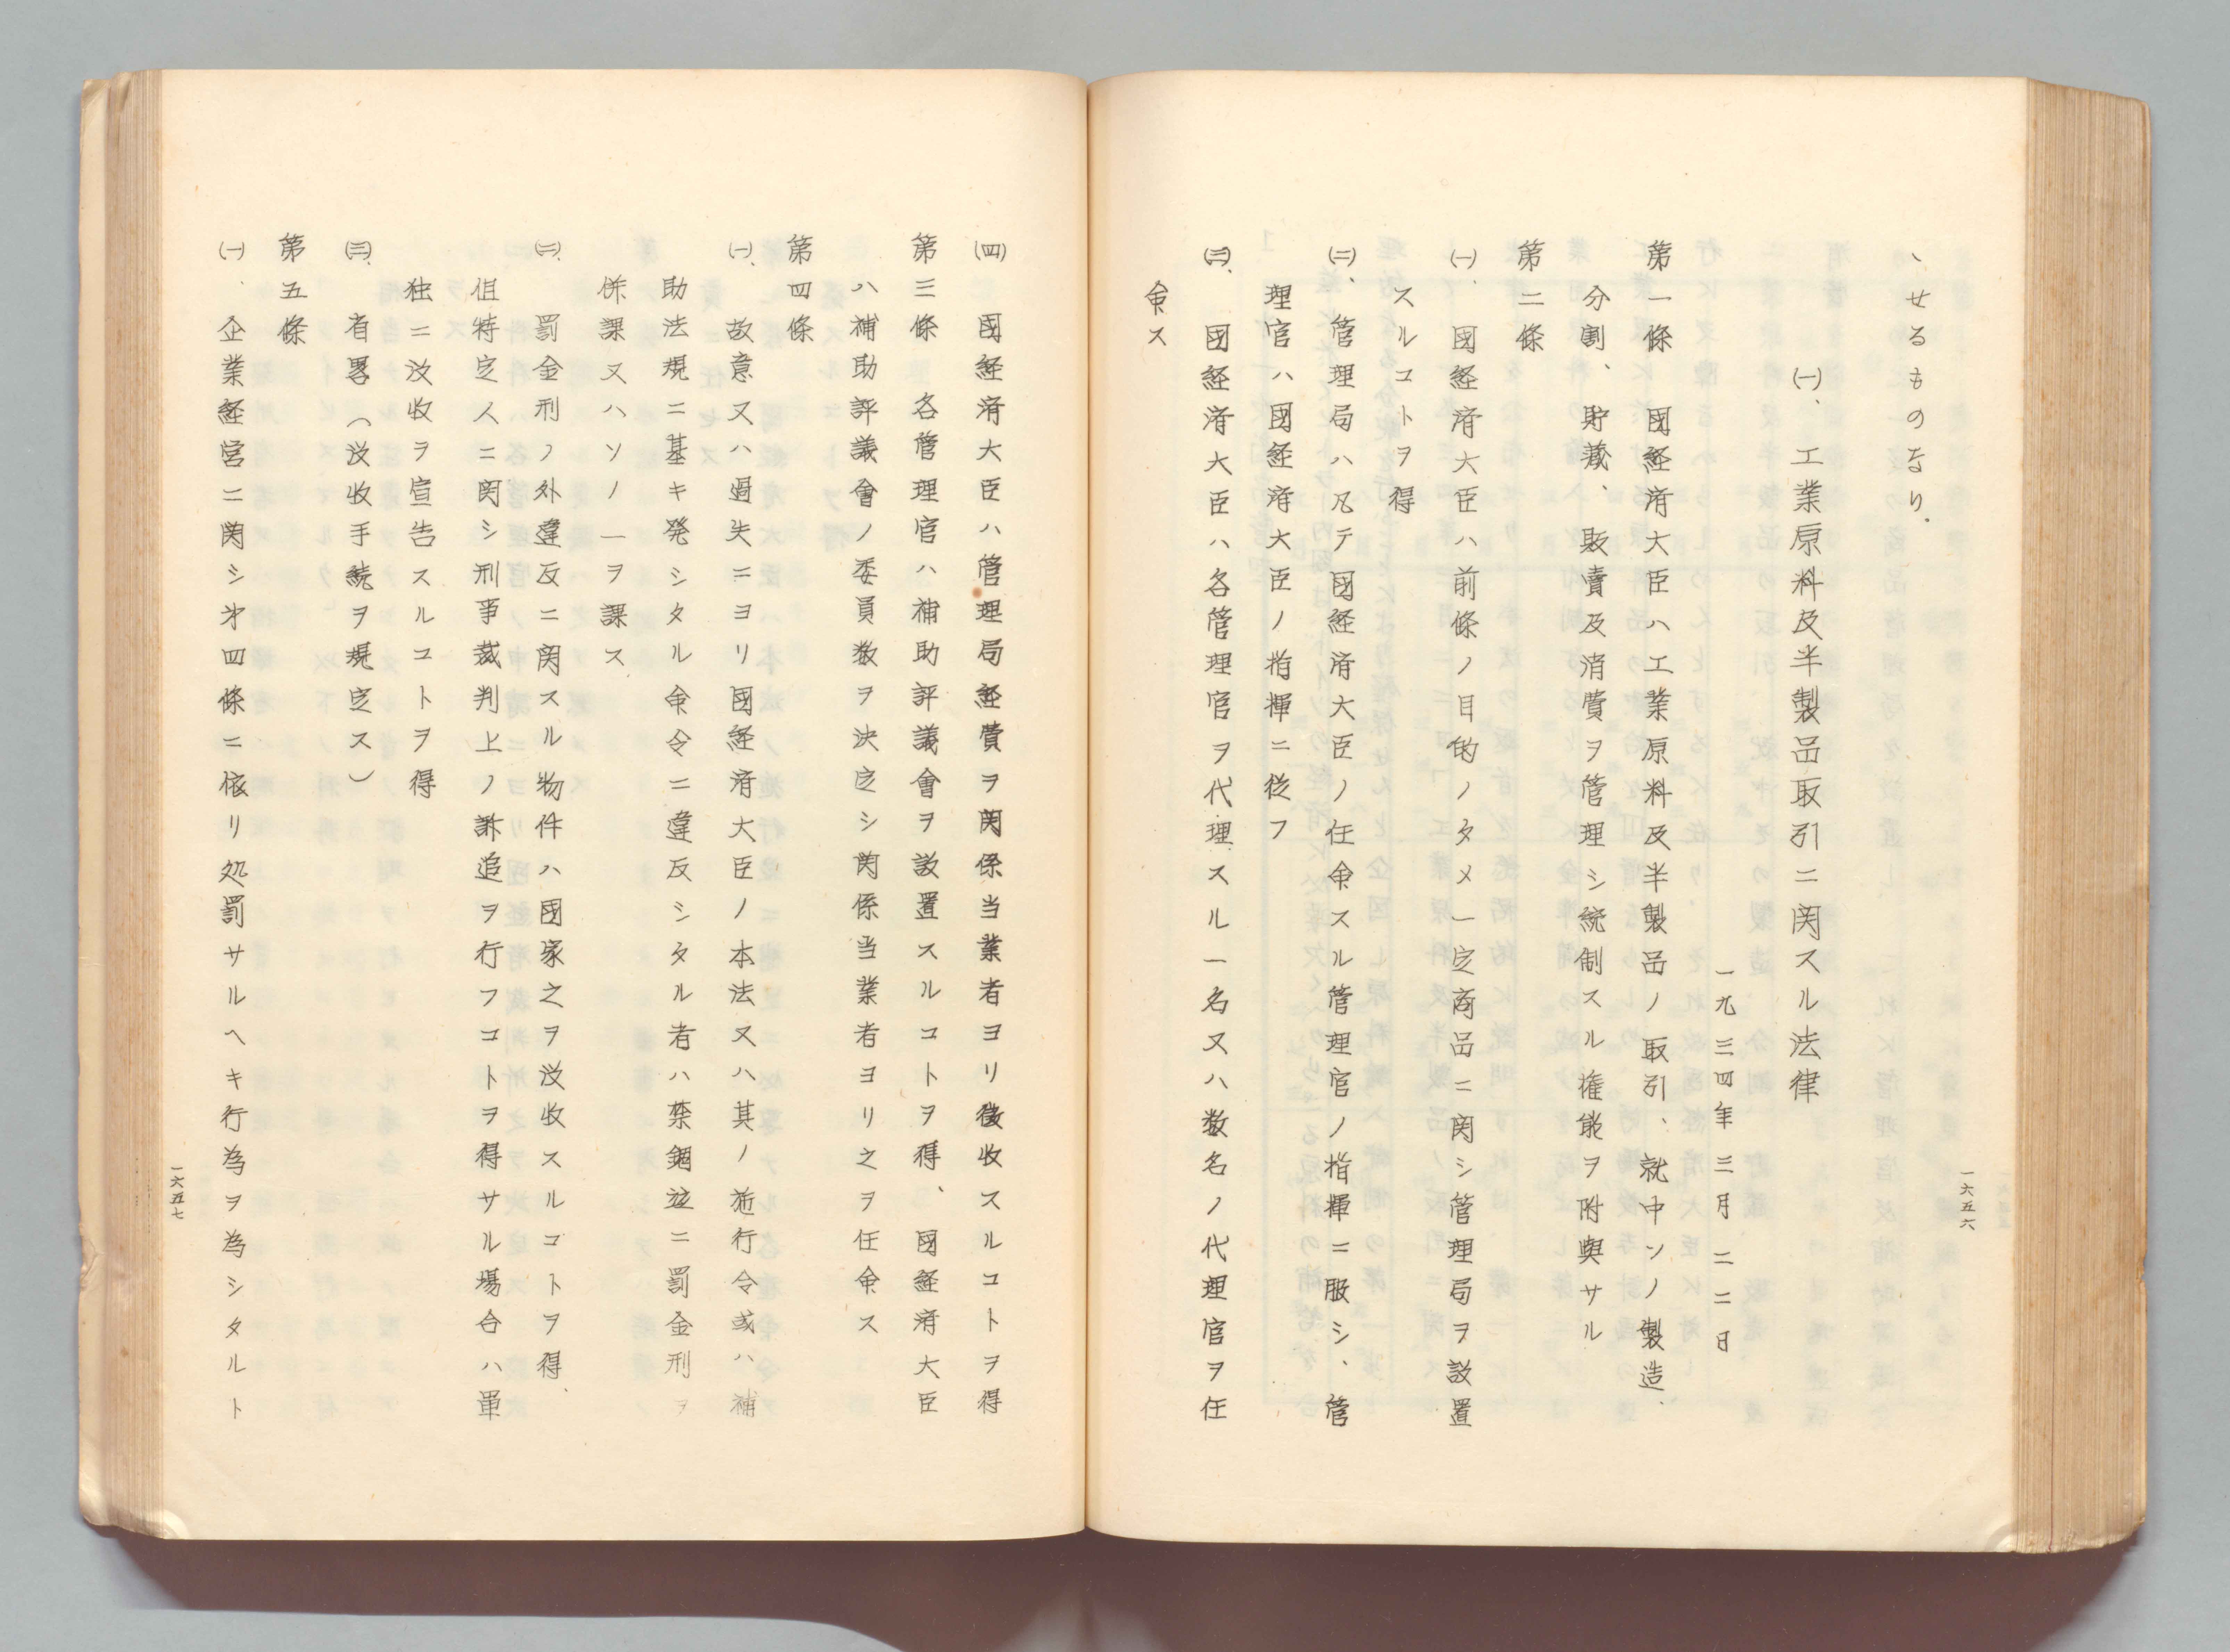 、せるものなり.
㈠、工業原料及半製品取引ニ関スル法律
一九三四年三月二二日
第一條　國経済大臣ハ工業原料及半製品ノ取引、就中ソノ製造、
分割、貯蔵、販賣及消費ヲ管理シ統制スル権能ヲ附與サル
第二條
㈠.　國経済大臣ハ前條ノ目的ノタメ一定商品ニ関シ管理局ヲ設置
スルコトヲ得
㈡、管理局ハ凡テ國経済大臣ノ任命スル管理官ノ指揮ニ服シ、管
理官ハ國経済大臣ノ指揮ニ従フ
㈢.　國経済大臣ハ各管理官ヲ代理スル一名又ハ数名ノ代理官ヲ任
命ス
一六五六
㈣　國経済大臣ハ管理局経費ヲ関係当業者ヨリ徴收スルコトヲ得
第三條　各管理官ハ補助評議會ヲ設置スルコトヲ得、國経済大臣
ハ補助評議會ノ委員数ヲ決定シ関係当業者ヨリ之ヲ任命ス
第四條
㈠、故意又ハ過失ニヨリ國経済大臣ノ本法又ハ其ノ施行令或ハ補
助法規ニ基キ発シタル命令ニ違反シタル者ハ禁錮並ニ罰金刑ヲ
併課又ハソノ一ヲ課ス
㈡.　罰金刑ノ外違反ニ関スル物件ハ國家之ヲ没收スルコトヲ得、
但特定人ニ関シ刑事裁判上ノ訴追ヲ行フコトヲ得サル場合ハ単
独ニ没收ヲ宣告スルコトヲ得
㈢.　省畧（没收手続ヲ規定ス）
第五條
㈠.　企業経営ニ関シ才四條ニ依リ処罰サルヘキ行為ヲ為シタルト
一六五七